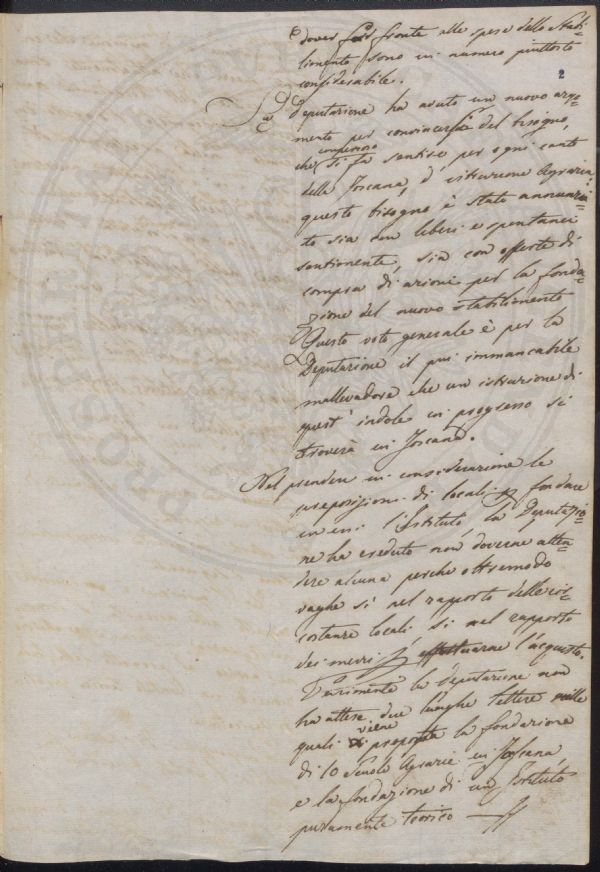 dover far fronte alle spese dello Stabi=
limento sono in numero piuttosto
considerabile.
2
La Deputazione ha avuto un nuovo argo=
mento per convincersi del bisogno,
che compreso si fa sentire per ogni canto
della Toscana, d'istruzione Agraria:
questo bisogno è stato annunzia=
to sia con liberi e spontanei
sentimenti, sia con offerte di
compra di azioni per la fonda=
zione del nuovo stabilimento
Questo voto generale è per la
Deputazione il più immancabile
mallevadore che un istruzione di
quest'indole in progresso si
troverà in Toscana.
Nel prendere in considerazione le
proposizioni di locali p. fondare
in essi l'Istituto, la Deputazio=
ne ha creduto non doverne atten=
dere alcuna perche oltremodo
vaghe sì nel rapporto delle cir=
costanze locali, si nel rapporto
dei mezzi p. effettuarne l'acquisto.
Parimente la Deputazione non
ha attese due lunghe lettere nelle
quali viene proposta la fondazione
di 10 Scuole Agrarie in Toscana
e la fondazione di un Istituto
puramente teorico
PROSPERITATI PUBLICAE